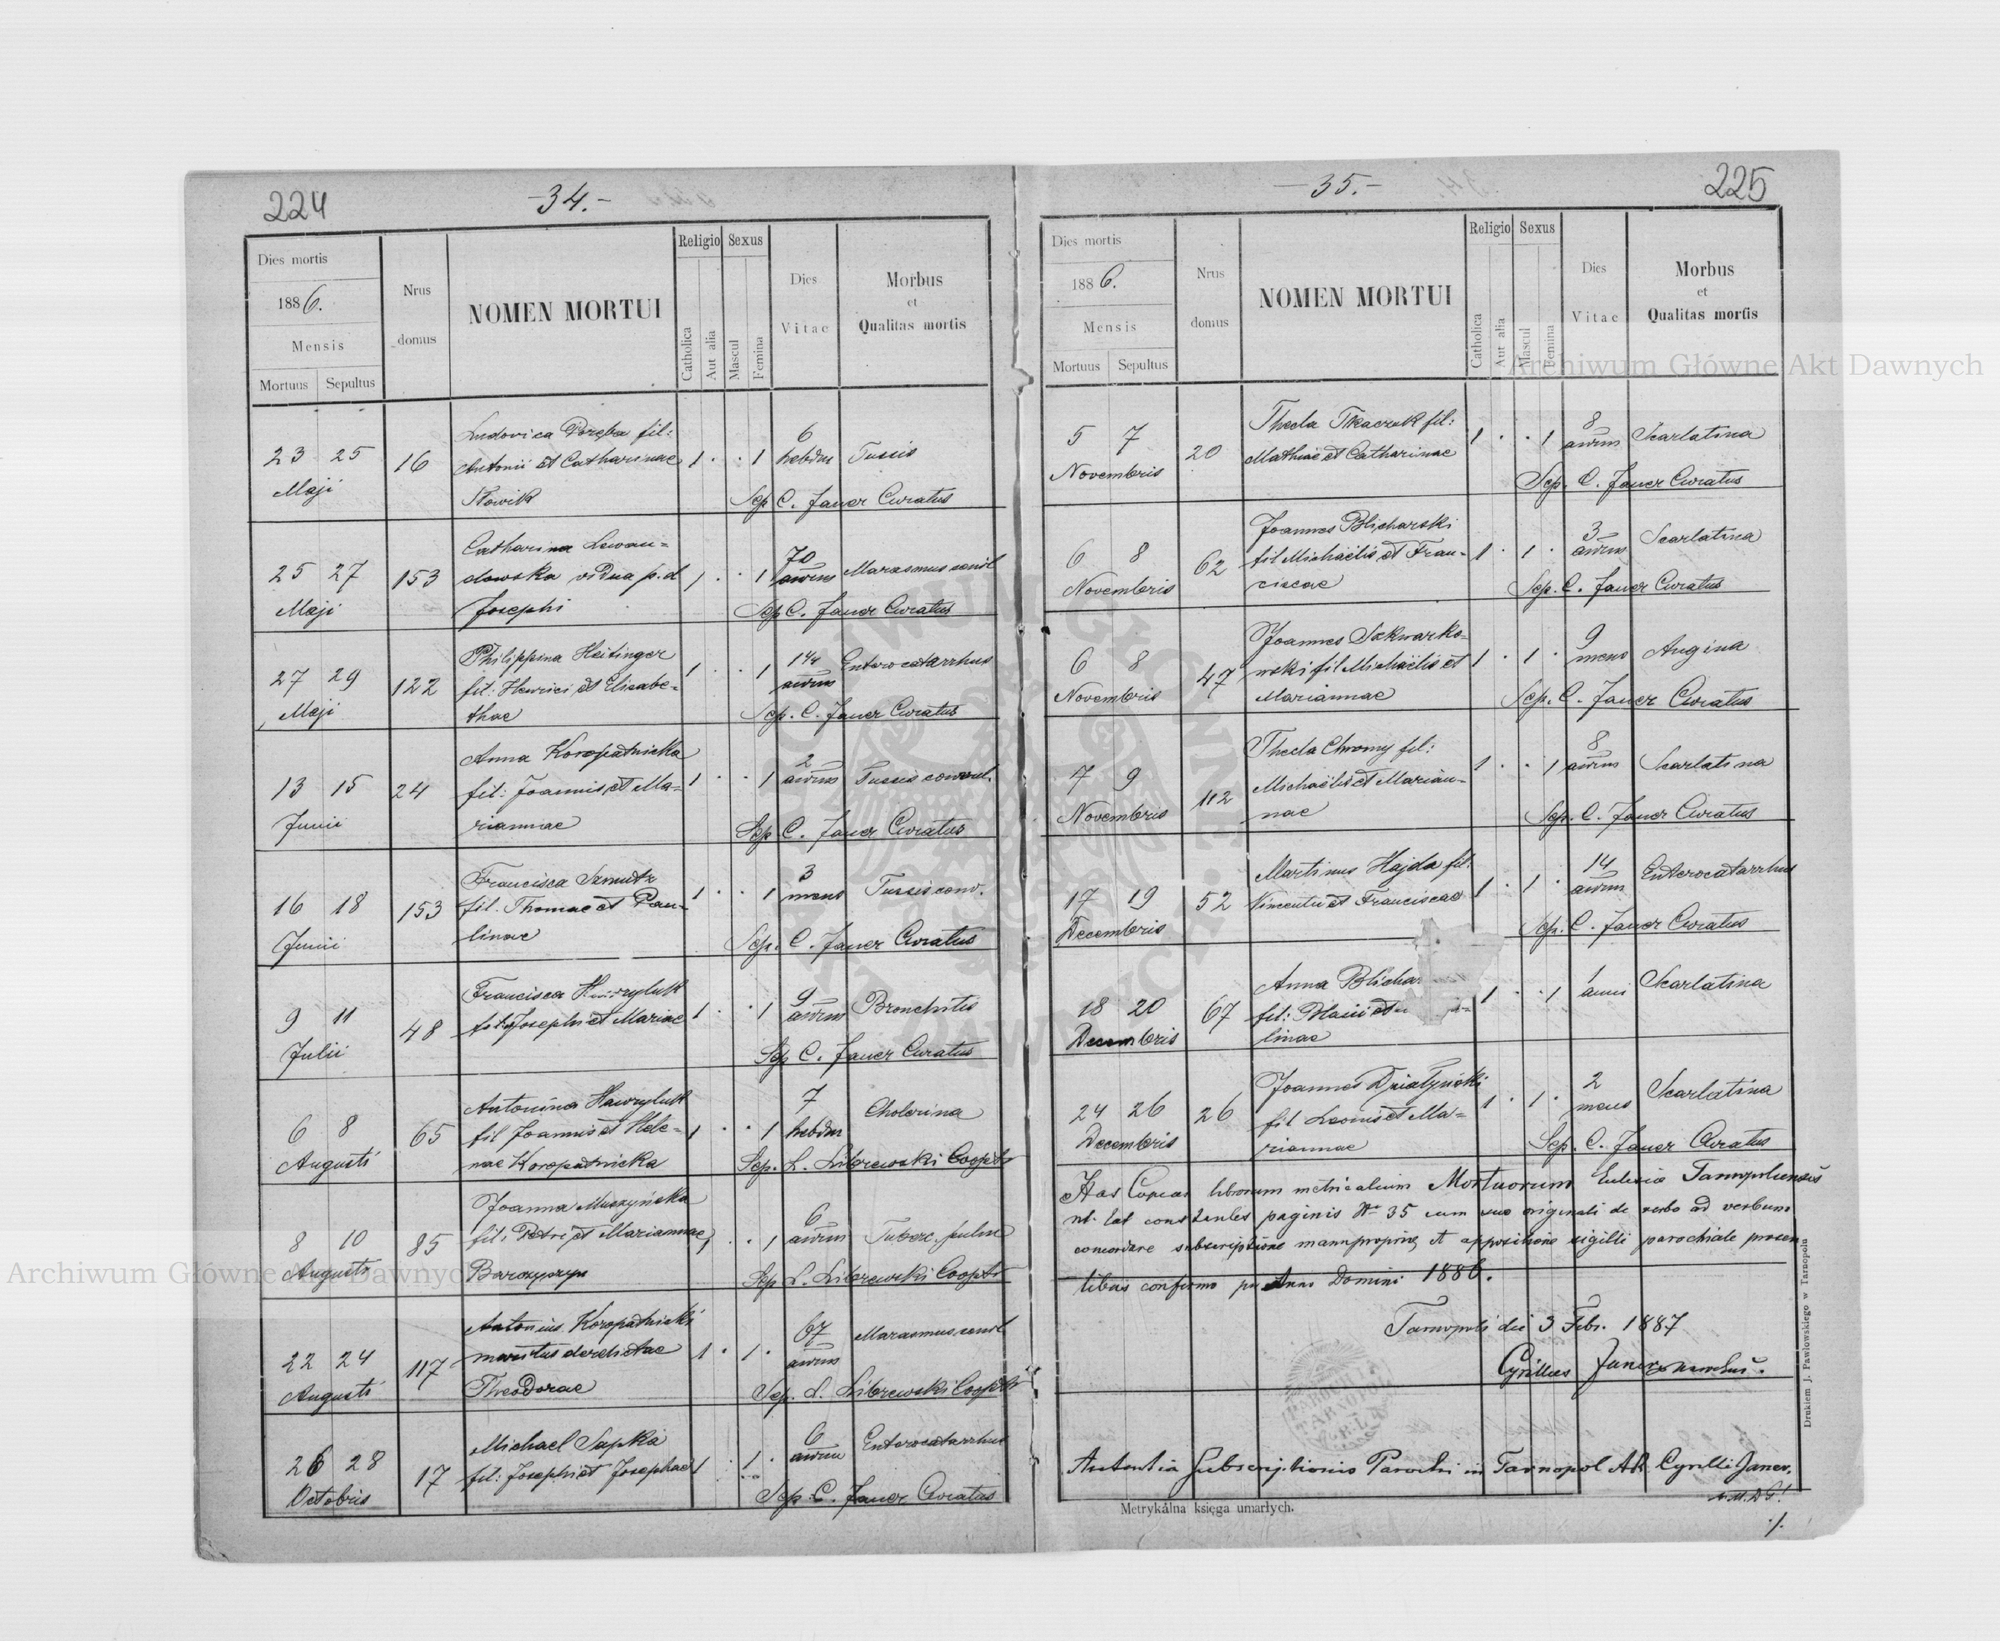 224
-34.-
Dies mortis
1886.
Mensis
Mortuus Sepultus
Nrus
domus
NOMEN MORTUI
Religio
Catholica
Aut alia
Sexus
Mascul
Femina
Dies
Vitae
Morbus
et
Qualitas mortis
Ludovica Poręba fil:
23 25 16 Antonii et Catharinae 1 . . 1 6 hebdm Tussis
Maji
Słowik Sep C. Janer Curatus
Catharina Lewan=
25 27 153 dowska vidua p. d 1 . . 1 70 annm Marasmus senil
Maji Josephi Sep C. Janer Curatus
Philippina Heitinger
27 29 122 fil: Henrici et Elisabe= 1 . . 1 annm Enterocatarrhus
Maji thae Sep. C. Janer Curatus
Anna Koropatnicka
13 15 24 fil: Joannis et Ma= 1 . . 1 2 annm Tussis convul.
Junii riannae Sep C. Janer Curatus
Francisca Szmutz
16 18 153 fil. Thomae et Pau= 1 . . 1 3 mens Tussis conv.
Junii linae Sep. C. Janer Curatus
Francisca
9 11 48 Josephi et Mariae 1 . . 1 9 annm Bronchitis
Julii Sep C. Janer Curatus
Antonina Hawryluk
6 8 65 fil Joannis et Hele= 1 . . 1 7 hebdm Cholerina
Augusti nae Koropatnicka Sep. L. Librewski Coopts
Joanna Muszyńska
8 10 85 fil: Petri et Mariannae 1 . . 1 6 annm Tuberc. pulm
Augusti Sep L. Librewski Coopts
Antonius Koropatnicki
22 24 117 maritus derelictae 1 . 1 . 67 annm Marasmus senil
Augusti Theodorae Sep. L. Librewski Coopts
Michael Sapka
26 28 17 fil: Josephi et Josephae 1 . 1 . 6 annm Enterocatarrhus
Octobris Sep. C. Janer Curatus
225
-35.-
Dies mortis
1886.
Mensis
Mortuus Sepultus
Nrus
domus
NOMEN MORTUI
Religio
Catholica
Aut alia
Sexus
Mascul
Femina
Dies
Vitae
Morbus
et
Qualitas mortis
Thecla Tkaczuk fil:
5 7 20 Mathiae et Catharinae 1 . . 1 8 annm Scarlatina
Novembris Sep. C. Janer Curatus
Joannes Blicharski
6 8 62 fil Michaëlis et Fran= 1 . 1 . 3 annm Scarlatina
Novembris ciscae Sep. C. Janer Curatus
Joannes Szkwarko=
6 8 47 wski fil Michaëlis et 1 . 1 . 9 mens Angina
Novembris Mariannae Sep. C. Janer Curatus
Thecla Chromy fil:
7 9 112 Michaëlis et Marian= 1 . . 1 8 annm Scarlatina
Novembris nae Sep. C. Janer Curatus
Martinus Hajda fil.
17 19 52 Vincentii et Franciscae 1 . 1 . 14 annm Enterocatarrhus
Decembris Sep. C. Janer Curatus
Anna Blichar
18 20 67 fil: Blasii et 1 . . 1 1 anni Scarlatina
Decembris linae
Joannes Działyński
24 26 26 fil Leonis et Ma= 1 . 1 . 2 mens Scarlatina
Decembris riannae Sep. C. Janer Curatus
Has Copias librorum metricalium Mortuorum Eclesiae Tarnopoliensis
r. l. constantes paginis Nr 35 cum suo originali de verbo ad verbum
concordare subscriptione manupropria et appositione sigilli parochialis praesen
tibus confirmo pro Anno Domini 1886.
Tarnopoli die 3 Febr. 1887
Cyrillus Janer parochus.
PAROCHI
TARNOPOL
R. L.
Subscriptionis Parochi in Tarnopol AR. Cyrilli Janer.
A. M. D. G!
./.
Metrykalna księga umarłych.
Drukiem J. Pawłowskiego w Tarnopolu
Archiwum Główne Akt Dawnych
Archiwum Główne Akt Dawnych
ARCHIWUM GŁÓWNE AKT DAWNYCH